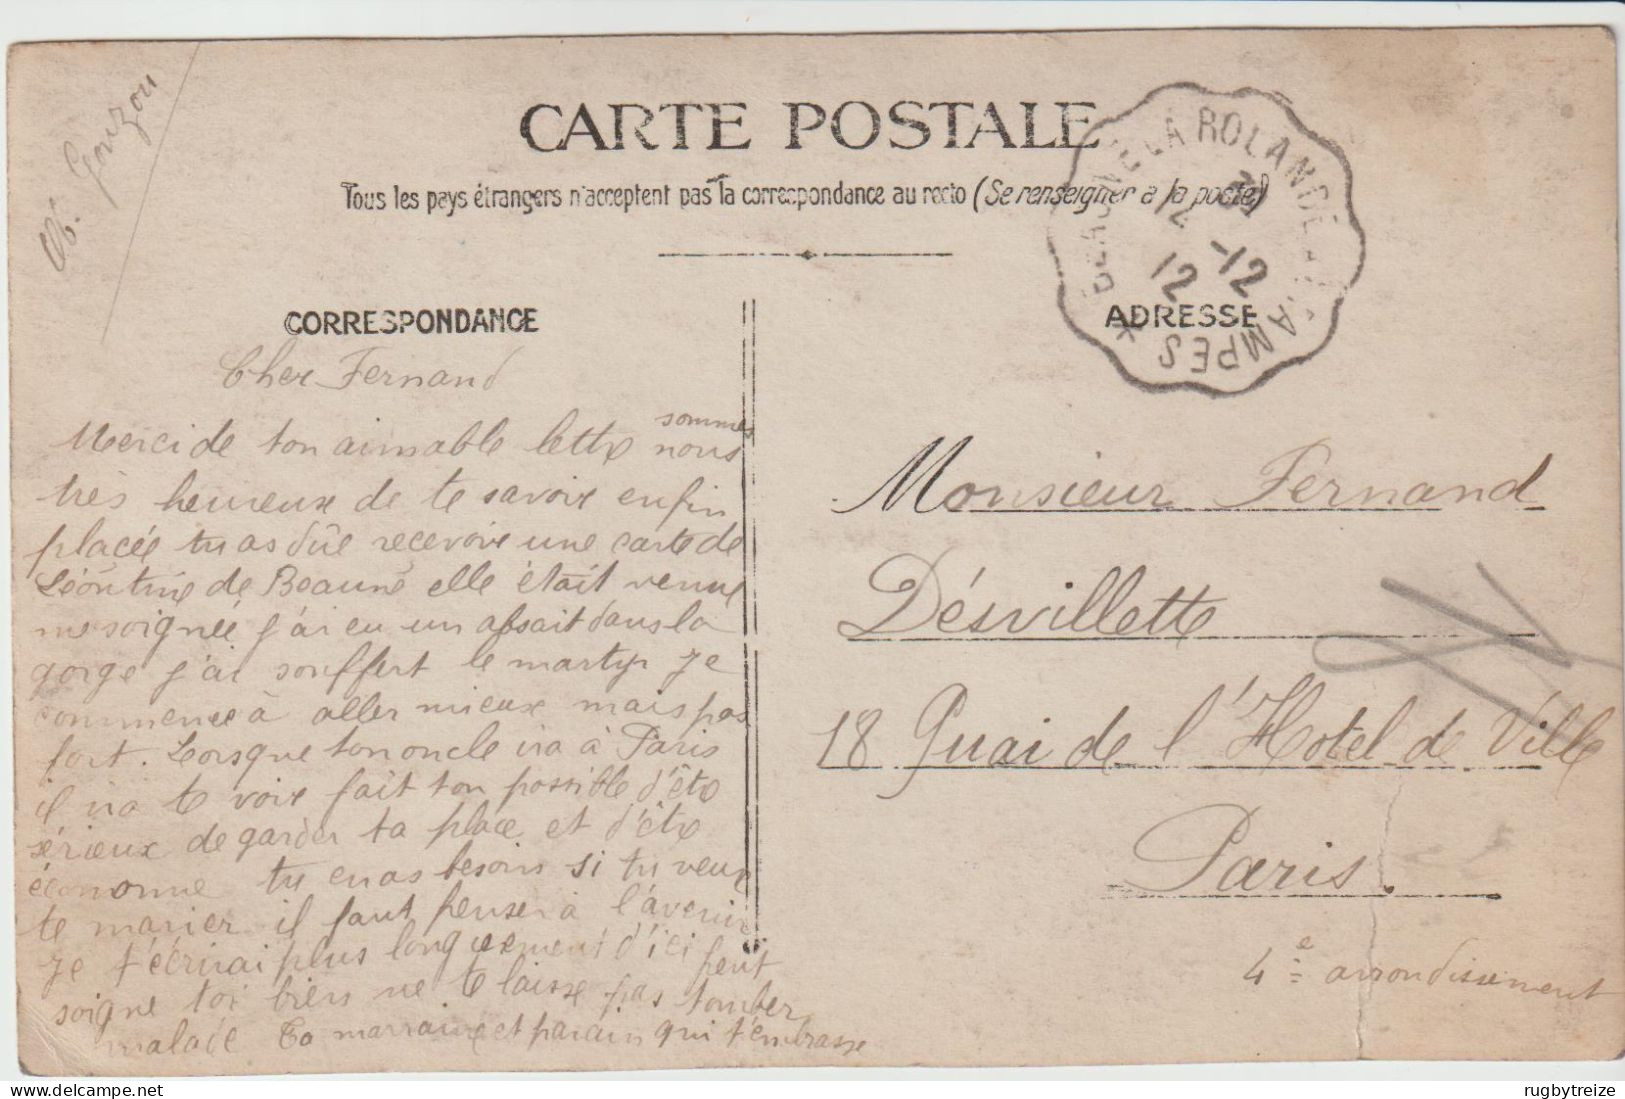 CARTE POSTALE
Tous les pays étrangers n'acceptent pas la correspondance au recto (Se renseigner à la poste)
LA ROLANDE
12
12 -12
AMPES *
Gouzou
CORRESPONDANCE
Cher Fernand
Merci de ton aimable lettre nous sommes
très heureux de te savoir enfin
placée tu as dûe recevoir une carte de
Léontine de Beaune elle était venue
me soignée j'ai eu un absait dans la
gorge j'ai souffert le martyr je
commence à aller mieux mais pas
fort. Lorsque ton oncle ira à Paris
il ira te voir fait ton possible d'être
sérieux de garder ta place et d'être
économe tu en as besoin si tu veux
te marier il faut penser à l'avenir
je t'écrirai plus longuement d'ici peut
soigne toi bien ne te laisse pas tomber
malade Ta marraine et parain qui t'embrasse
ADRESSE
Monsieur Fernand
Désvillette
18 Quai de l'Hotel de Ville
Paris.
4e arrondissement
rugbytreize